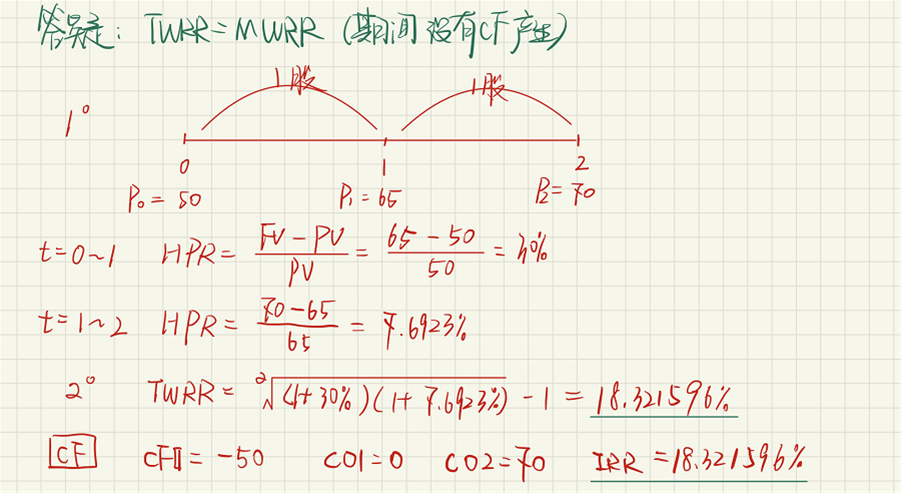 答疑: TWRR = MWRR (期间没有CF产生)
1股 1股
1°
0 1 2
P₀ = 50 P₁ = 65 P₂ = 70
t=0~1 HPR = (FV - PV)/PV = (65 - 50)/50 = 30%
t=1~2 HPR = (70-65)/65 = 7.6923%
2° TWRR = ²√(1+30%)(1+7.6923%) - 1 = 18.321596%
CF CF0 = -50 C01=0 C02=70 IRR = 18.321596%